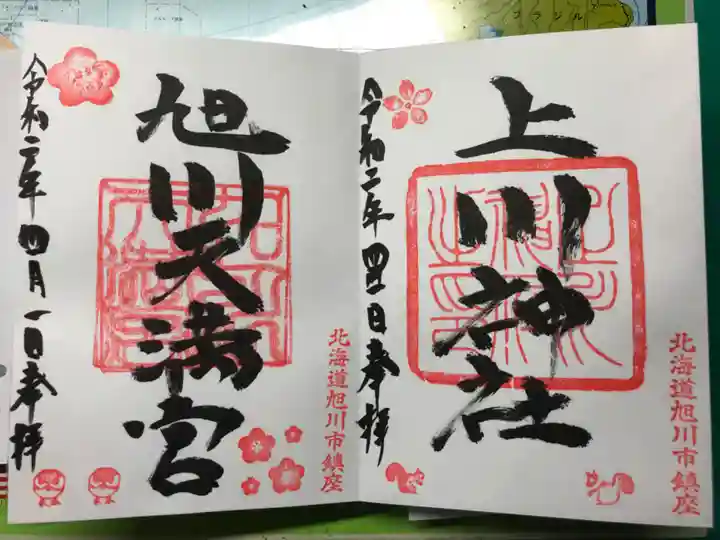 上川神社
令和二年四月一日奉拝
北海道旭川市鎮座
旭川天満宮
令和二年四月一日奉拝
北海道旭川市鎮座
ブラジル